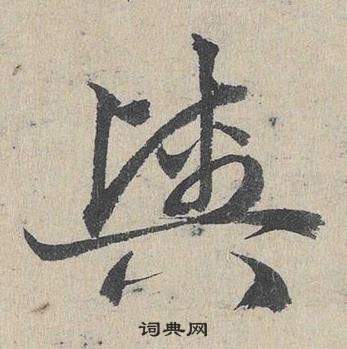 與
词典网